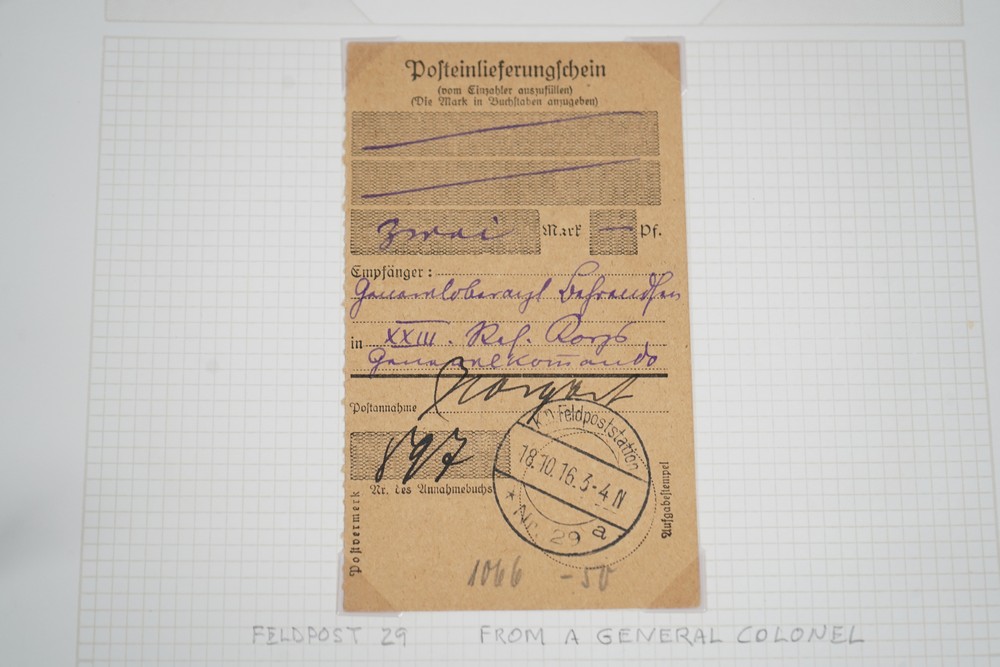 Posteinlieferungschein
(vom Einzahler auszufüllen)
(Die Mark in Buchstaben anzugeben)
zwei Mark — Pf.
Empfänger:
Generaloberarzt
in XXIII. Res. Korps
Generalkomando
Postannahme
897
Nr. des Annahmebuchs
Postvermerk
Aufgabestempel
K.D. Feldpoststation
18.10.16.3-4 N
* Nr. 29 a
1066 -50
FELDPOST 29 FROM A GENERAL COLONEL